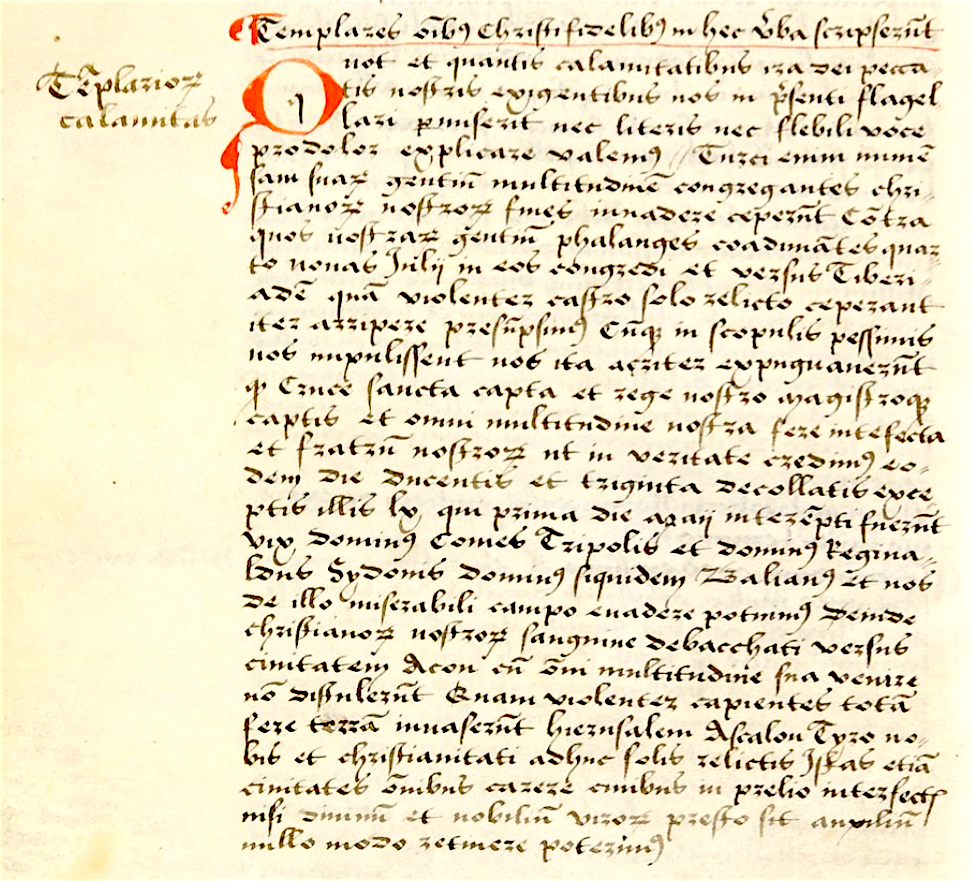 Templares oībꝰ Christifidelibꝰ in hec v̄ba scripserūt
Tēplarioꝝ
calamitas
Quot et quantis calamitatibus ira dei pecca-
tis nostris exigentibus nos in p̄senti flagel
lari ꝑmiserit nec literis nec flebili voce
prodolor explicare valemꝰ // Turci enim immē
sam suaꝝ gentiū multitudinē congregantes chri-
stianoꝝ nostroꝝ fines inuadere ceperūt Cōtra
quos nostraꝝ gentiū phalanges coadunātes quar-
to nonas Julij in eos congredi et versus Tiberi-
adē quā violenter castro solo relicto ceperant
iter arripere presūpsimꝰ Cūqꝫ in scopulis pessimis
nos impulissent nos ita acriter expugnauerūt
ꝙ Cruce sancta capta et rege nostro magistroqꝫ
captis et omni multitudine nostra fere intefecta
et fratrū nostroꝝ ut in veritate credimꝰ eo-
dem die ducentis et triginta decollatis exce
ptis illis lx qui prima die maij interēpti fuerūt
vix dominꝰ Comes Tripolis et dominꝰ Regina-
ldus Sydonis dominꝰ siquidem Balianꝰ Et nos
de illo miserabili campo euadere potuimꝰ Deinde
christianoꝝ nostroꝝ sanguine debacchati versus
ciuitatem Acon cū ōni multitudine sua venire
nō distulerūt Quam violenter capientes totā
fere terrā inuaserūt hierusalem Ascalon Tyro no-
bis et christianitati adhuc solis relictis Istas etiā
ciuitates ōnibus carere ciuibus in prelio interfectis
nisi diuinū et nobiliū viroꝝ presto sit auxiliū
nullo modo retinere poterimꝰ